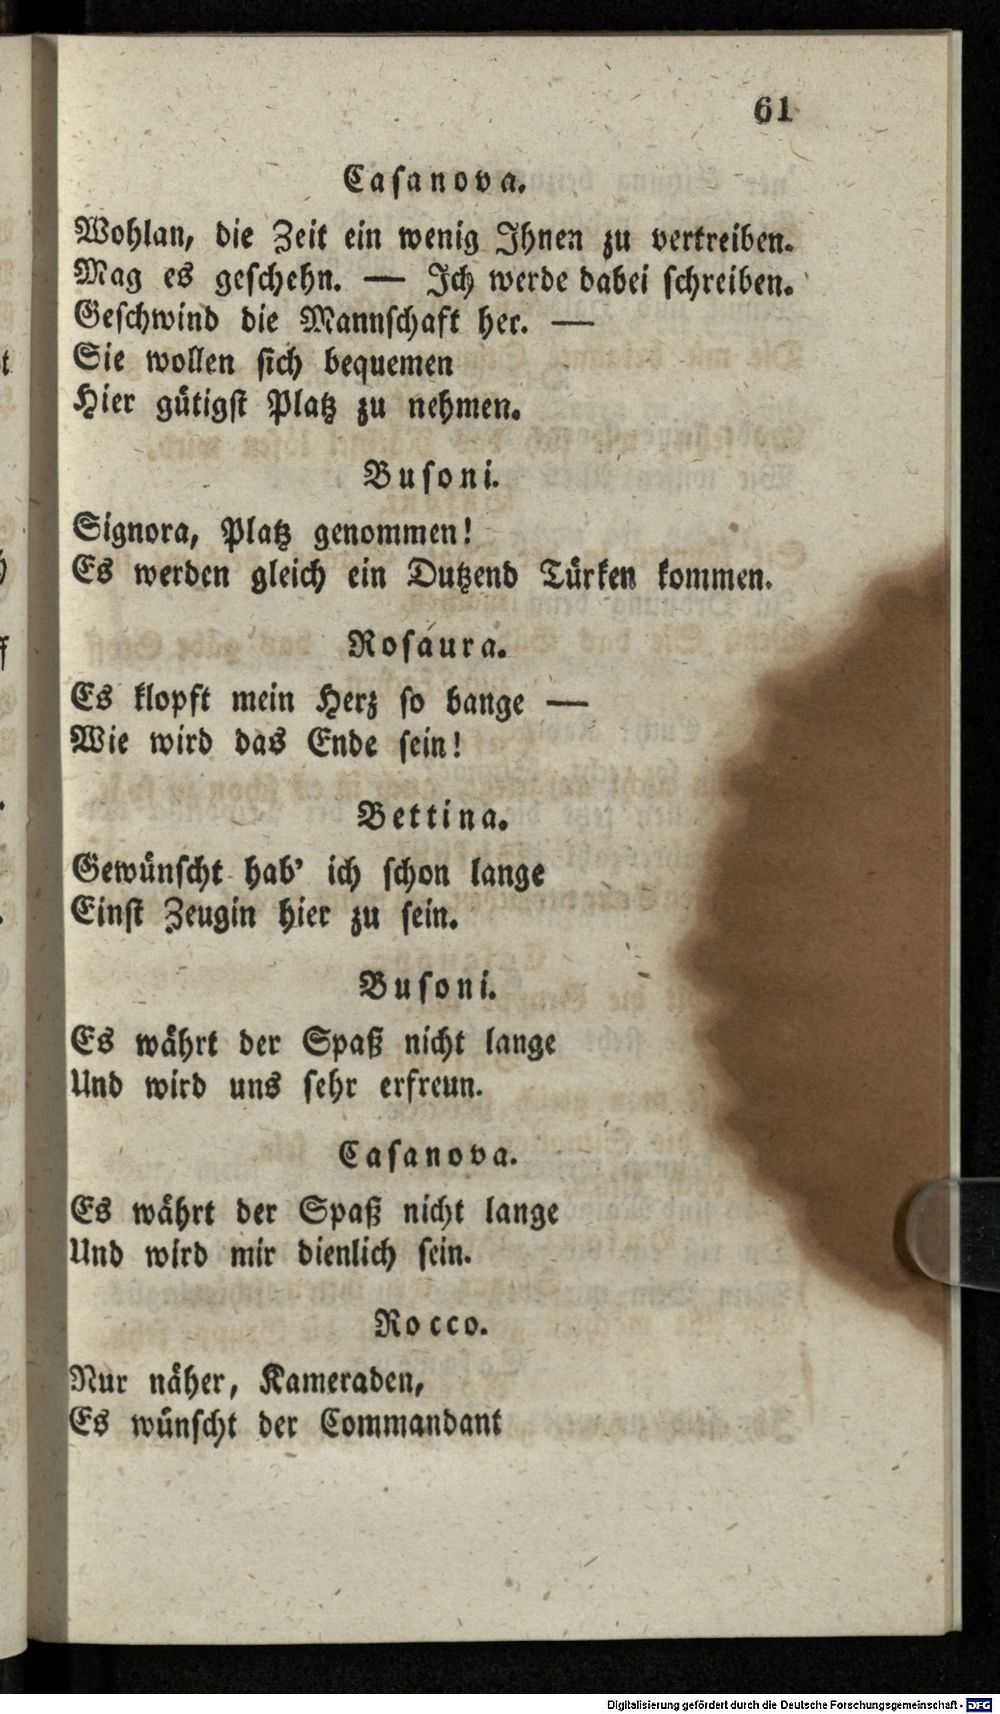 61
Casanova.
Wohlan, die Zeit ein wenig Ihnen zu vertreiben.
Mag es geschehn. — Ich werde dabei schreiben.
Geschwind die Mannschaft her. —
Sie wollen sich bequemen
Hier gütigst Platz zu nehmen.
Busoni.
Signora, Platz genommen!
Es werden gleich ein Dutzend Türken kommen.
Rosaura.
Es klopft mein Herz so bange —
Wie wird das Ende sein!
Bettina.
Gewünscht hab' ich schon lange
Einst Zeugin hier zu sein.
Busoni.
Es währt der Spaß nicht lange
Und wird uns sehr erfreun.
Casanova.
Es währt der Spaß nicht lange
Und wird mir dienlich sein.
Rocco.
Nur näher, Kameraden,
Es wünscht der Commandant
Digitalisierung gefördert durch die Deutsche Forschungsgemeinschaft - DFG